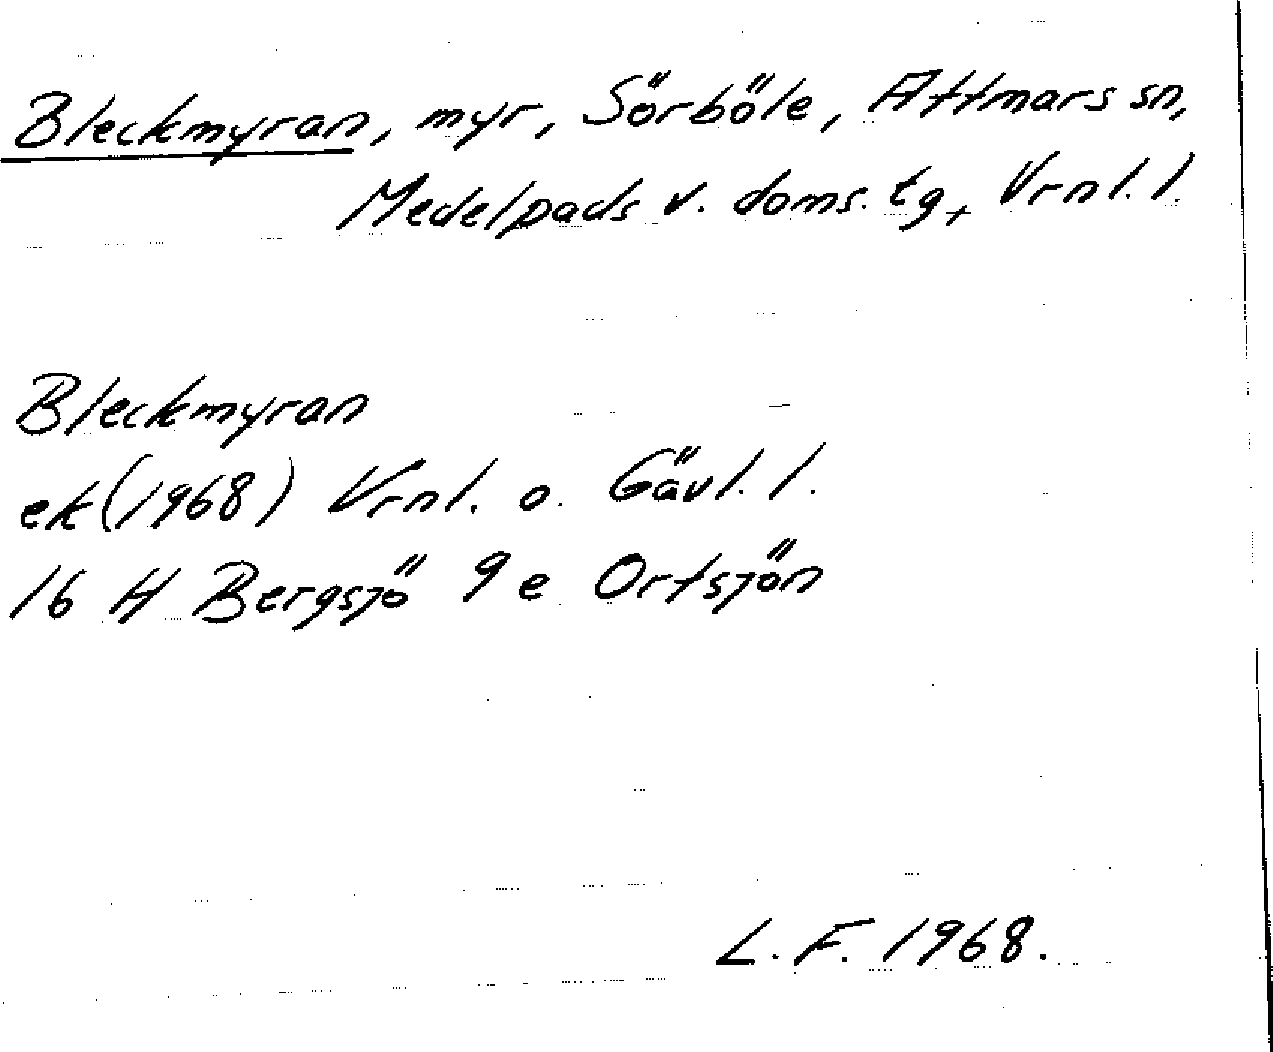 Bleckmyran, myr, Sörböle, Attmars sn,
Medelpads v. doms. tg, Vrnl. l.
Bleckmyran
ek (1968) Vrnl. o. Gävl. l.
16 H Bergsjö 9 e Ortsjön
L. F. 1968.